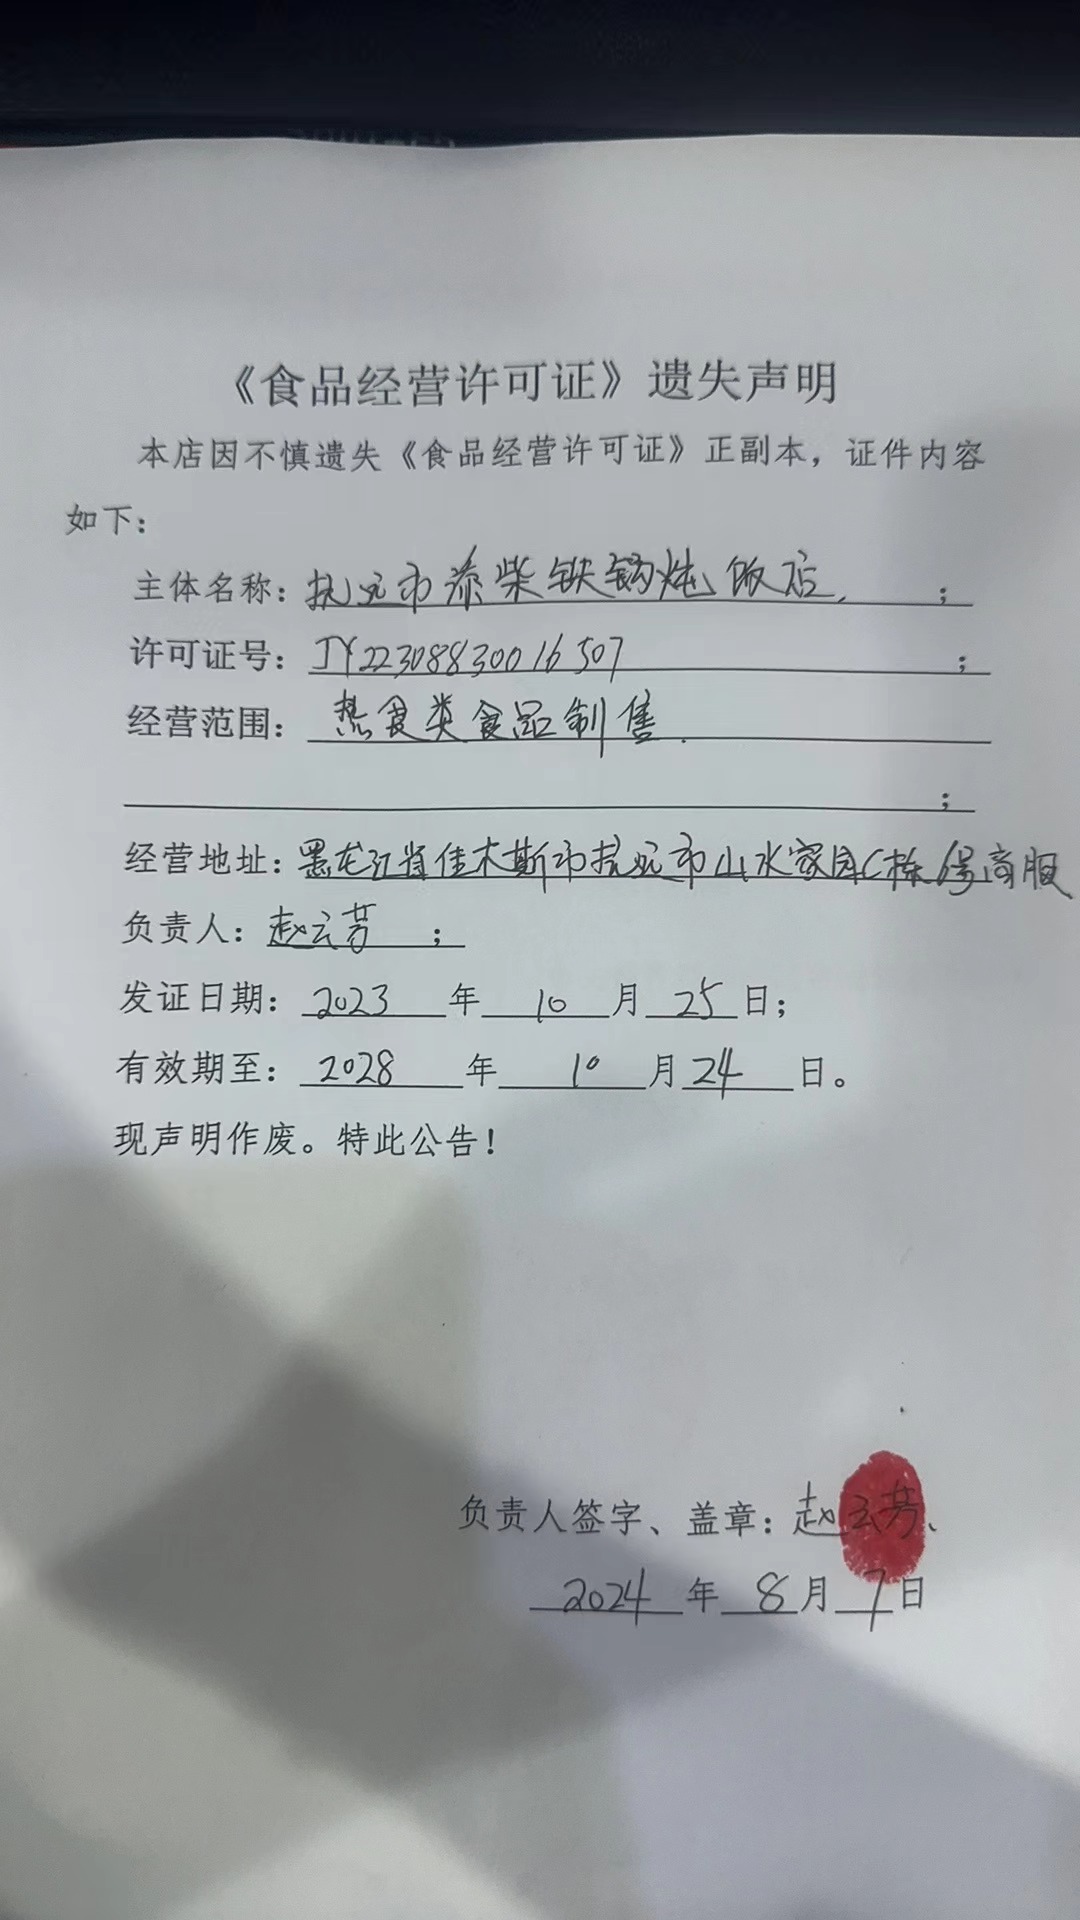 《食品经营许可证》遗失声明
本店因不慎遗失《食品经营许可证》正副本，证件内容
如下：
主体名称：抚远市添柴铁锅炖饭店 ；
许可证号：JY22308830016507 ；
经营范围：热食类食品制售
；
经营地址：黑龙江省佳木斯市抚远市山水家园C栋 号商服
负责人：赵云芳 ；
发证日期：2023 年 10 月 25 日；
有效期至：2028 年 10 月 24 日。
现声明作废。特此公告！
负责人签字、盖章：赵云芳
2024 年 8 月 7 日